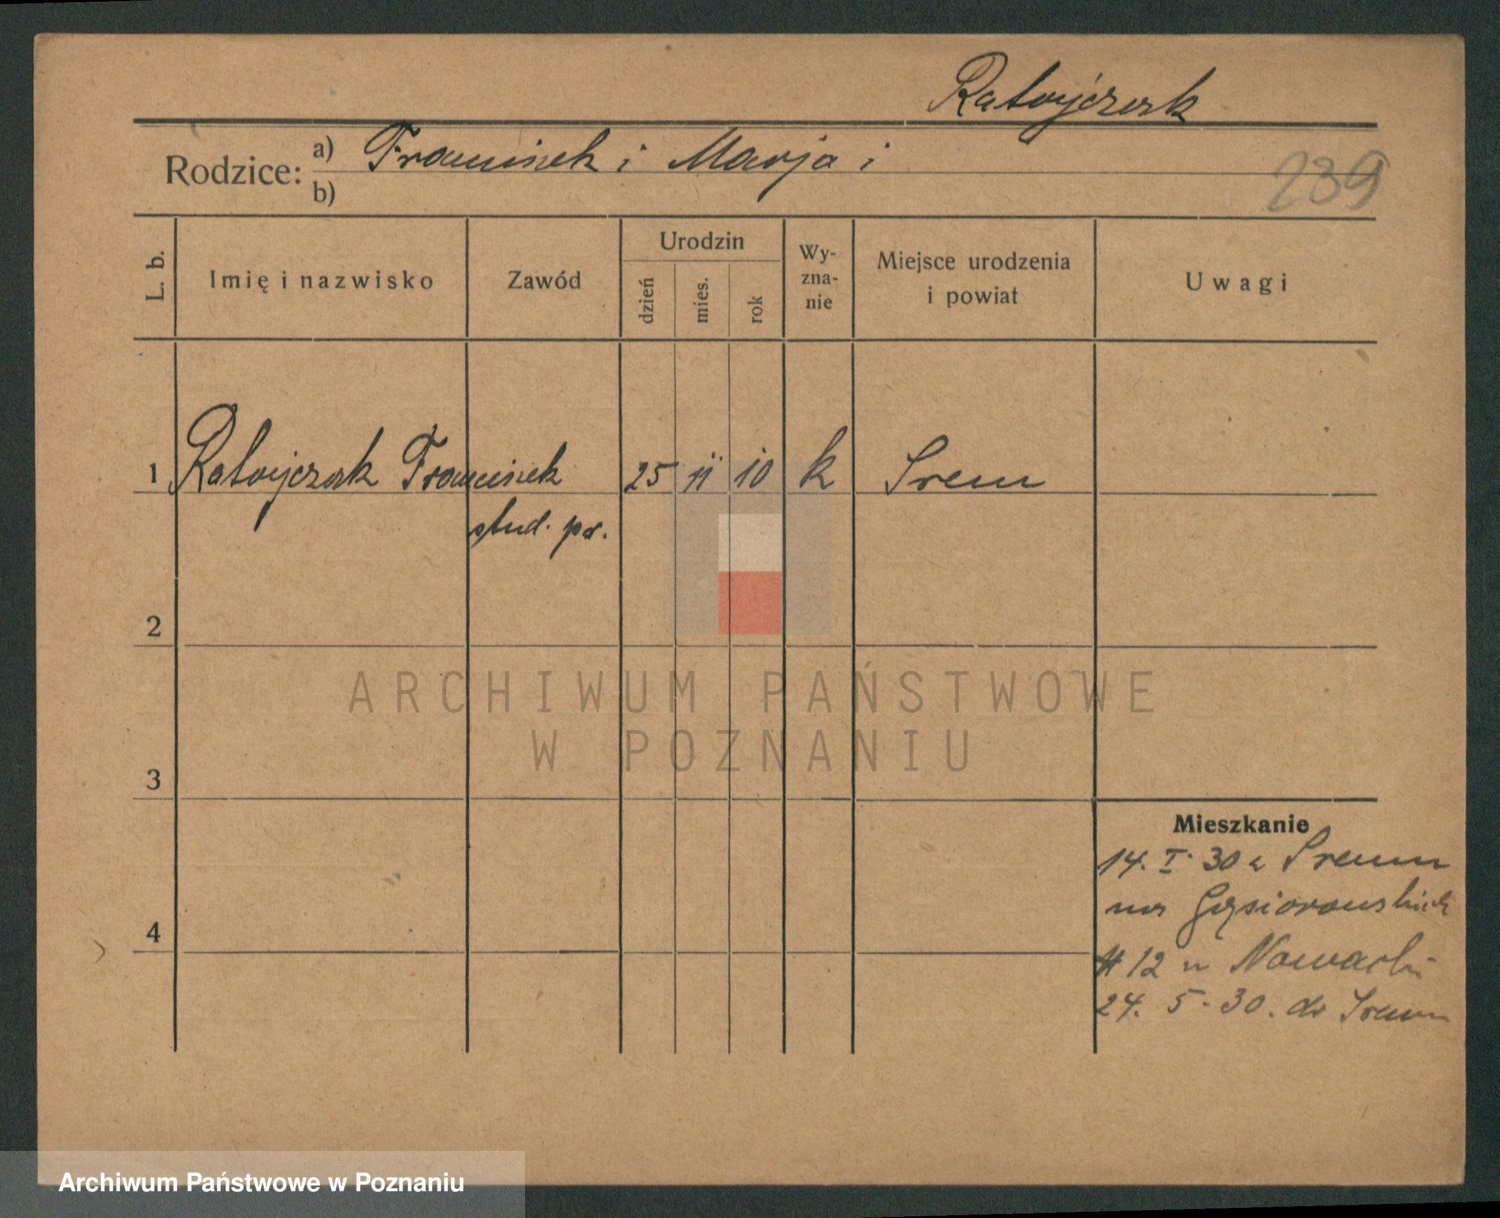 Ratajczak
Rodzice: a) Franciszek i Marja i
b)
239
L. b.
Imię i nazwisko
Zawód
Urodzin
dzień
mies.
rok
Wy-
zna-
nie
Miejsce urodzenia
i powiat
Uwagi
1 Ratajczak Franciszek 25 11 10 k Śrem
stud. pr.
2
3
4
Mieszkanie
14. I. 30 z Śremu
na Gąsiorowskich
12 u Nowacki
24. 5. 30. do Śremu
ARCHIWUM PAŃSTWOWE
W POZNANIU
Archiwum Państwowe w Poznaniu